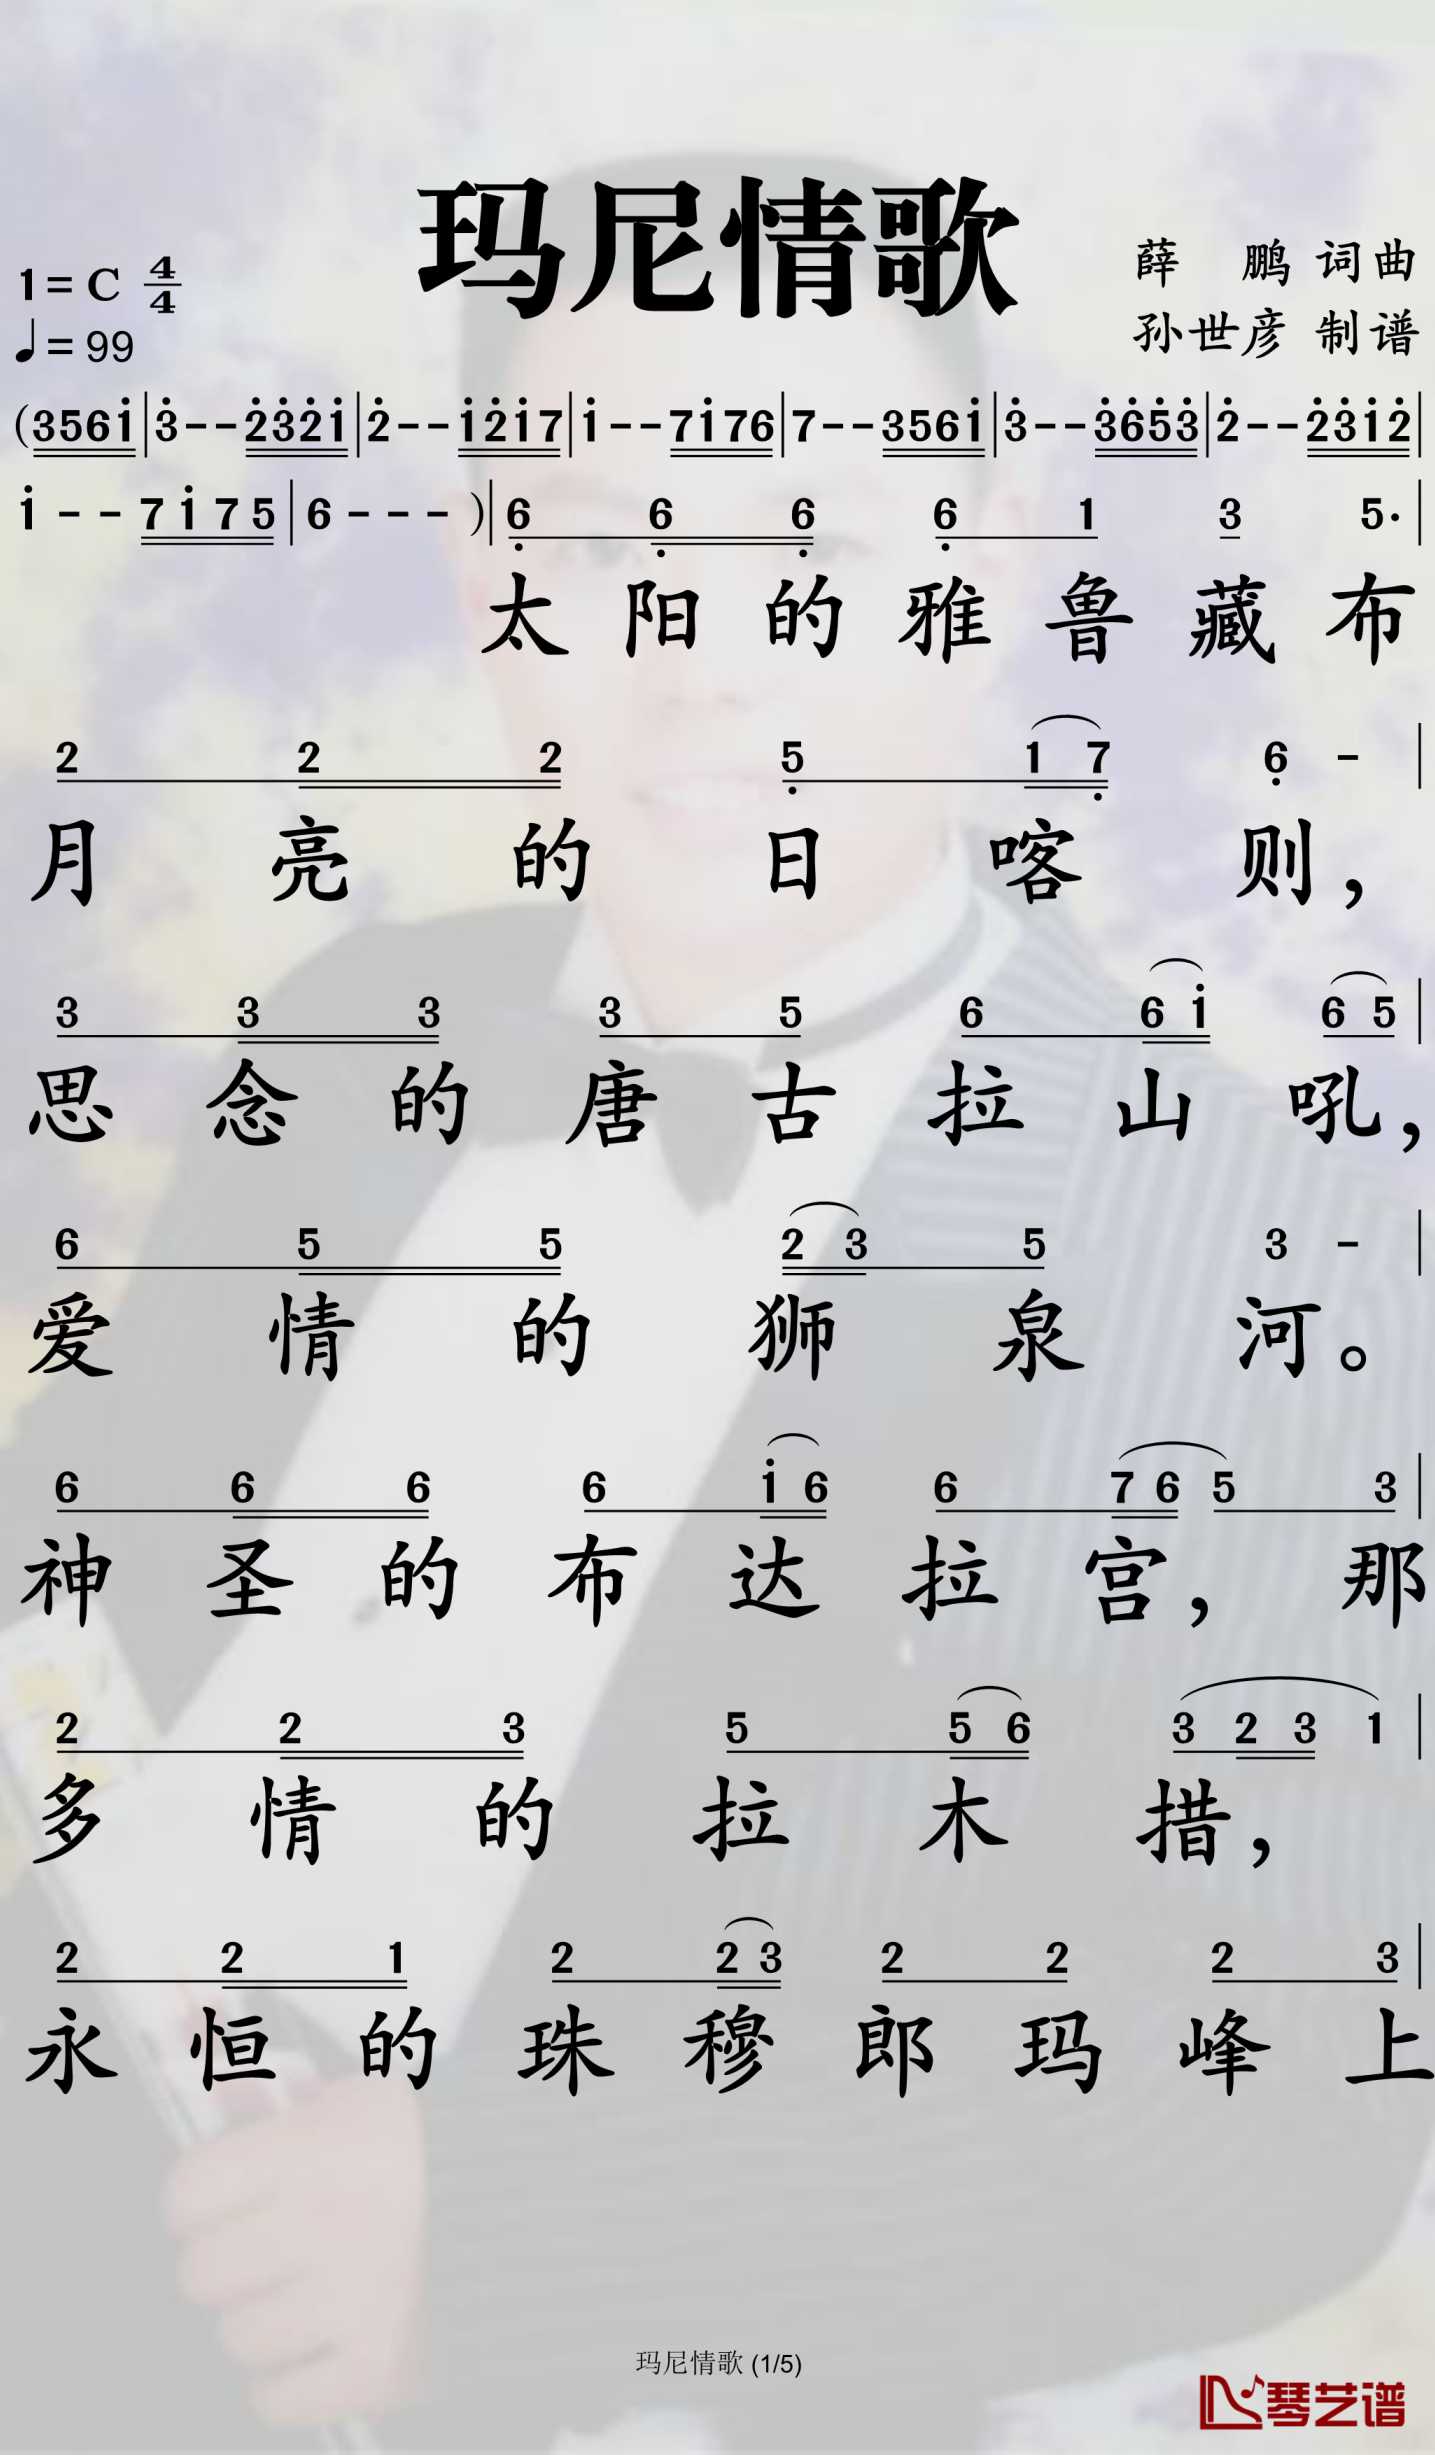 玛尼情歌
1=C 4/4
薛 鹏 词曲
♩=99
孙世彦 制谱
(356i̇|3̇--2̇3̇2̇i̇|2̇--i̇2̇i̇7|i̇--7i̇76|7--356i̇|3̇--3̇6̇5̇3̇|2̇--2̇3̇i̇2̇|
i̇--7i̇75|6---)|6̣ 6̣ 6̣ 6̣ 1 3 5·|
太阳的雅鲁藏布
2 2 2 5̣ 1 7̣ 6̣ -|
月亮的日喀则，
3 3 3 3 5 6 6 i̇ 6 5|
思念的唐古拉山吼，
6 5 5 2 3 5 3 -|
爱情的狮泉河。
6 6 6 6 i̇ 6 6 7 6 5 3|
神圣的布达拉宫，那
2 2 3 5 5 6 3 2 3 1|
多情的拉木措，
2 2 1 2 2 3 2 2 2 3|
永恒的珠穆郎玛峰上
玛尼情歌 (1/5)
琴艺谱